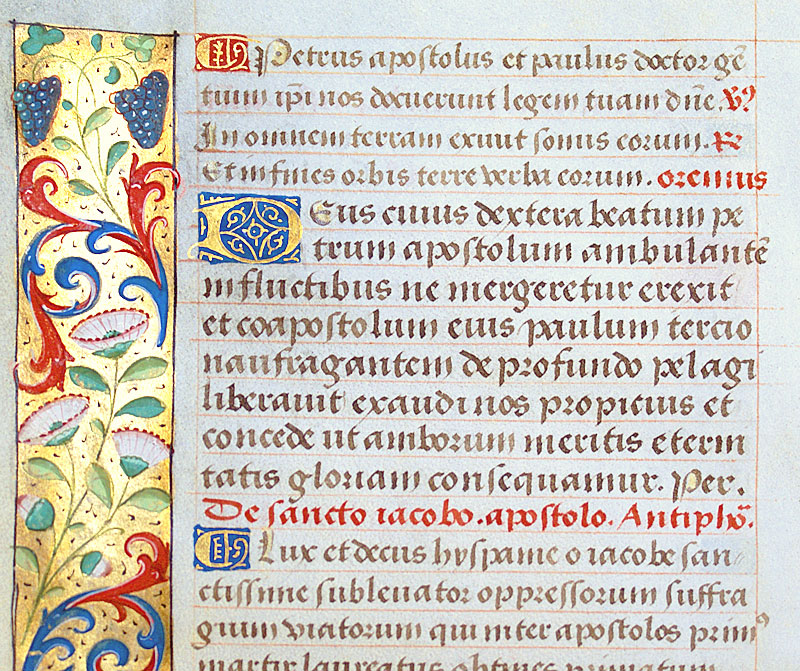 Petrus apostolus et paulus doctor gẽ
tium ip̃i nos docuerunt legem tuam dñe. V̓
In omnem terram exiuit sonus eorum. R̃
Et in fines orbis terre verba eorum. oremus
Deus cuius dextera beatum pe
trum apostolum ambulantẽ
in fluctibus ne mergeretur erexit
et coapostolum eius paulum tercio
naufragantem de profundo pelagi
liberauit exaudi nos propicius et
concede ut amborum meritis eterni
tatis gloriam consequamur. Per.
De sancto iacobo. apostolo. Antiphõ.
O Lux et decus hyspanie o iacobe san
ctissime subleuator oppressorum suffra
gium viatorum qui inter apostolos primꝰ
martir laureatus obtines primatum